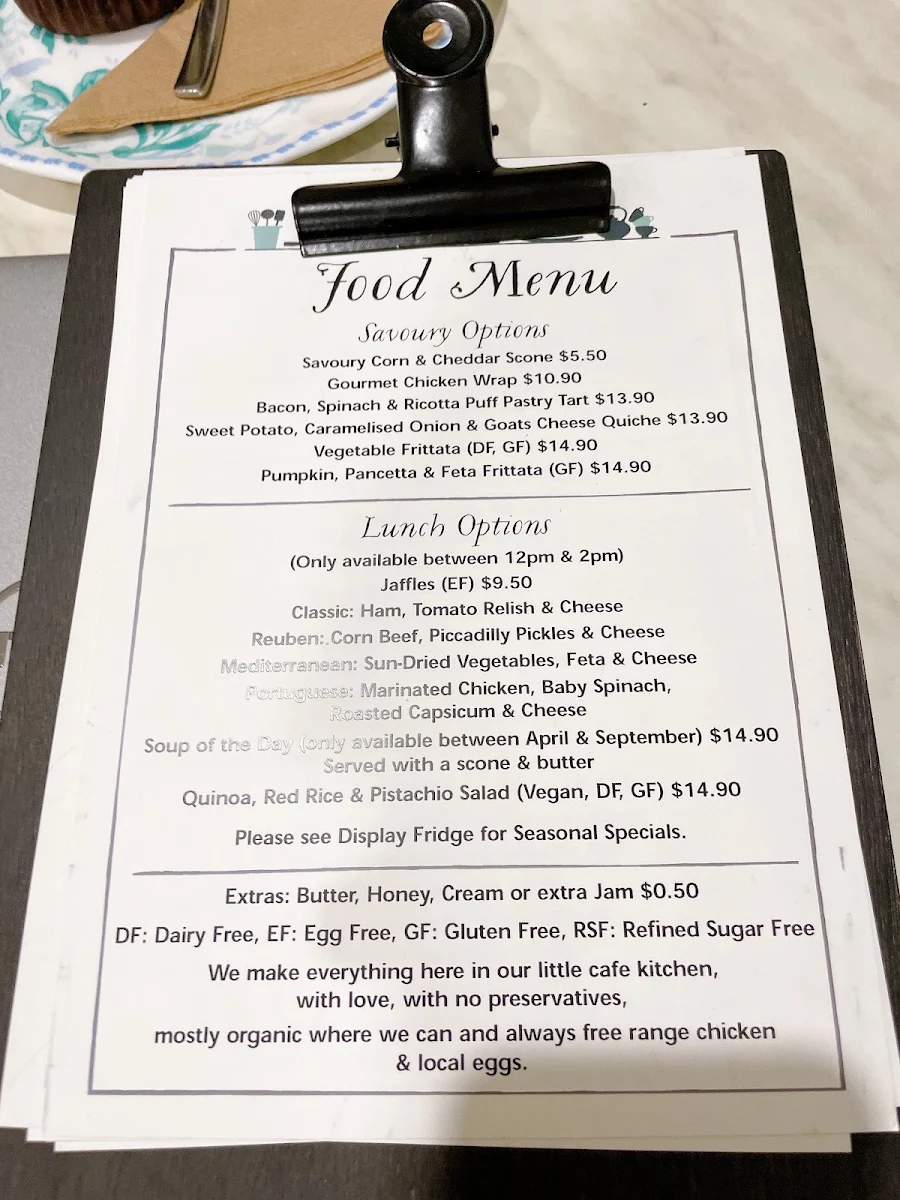 Food Menu
Savoury Options
Savoury Corn & Cheddar Scone $5.50
Gourmet Chicken Wrap $10.90
Bacon, Spinach & Ricotta Puff Pastry Tart $13.90
Sweet Potato, Caramelised Onion & Goats Cheese Quiche $13.90
Vegetable Frittata (DF, GF) $14.90
Pumpkin, Pancetta & Feta Frittata (GF) $14.90
Lunch Options
(Only available between 12pm & 2pm)
Jaffles (EF) $9.50
Classic: Ham, Tomato Relish & Cheese
Reuben: Corn Beef, Piccadilly Pickles & Cheese
Mediterranean: Sun-Dried Vegetables, Feta & Cheese
Portuguese: Marinated Chicken, Baby Spinach,
Roasted Capsicum & Cheese
Soup of the Day (only available between April & September) $14.90
Served with a scone & butter
Quinoa, Red Rice & Pistachio Salad (Vegan, DF, GF) $14.90
Please see Display Fridge for Seasonal Specials.
Extras: Butter, Honey, Cream or extra Jam $0.50
DF: Dairy Free, EF: Egg Free, GF: Gluten Free, RSF: Refined Sugar Free
We make everything here in our little cafe kitchen,
with love, with no preservatives,
mostly organic where we can and always free range chicken
& local eggs.